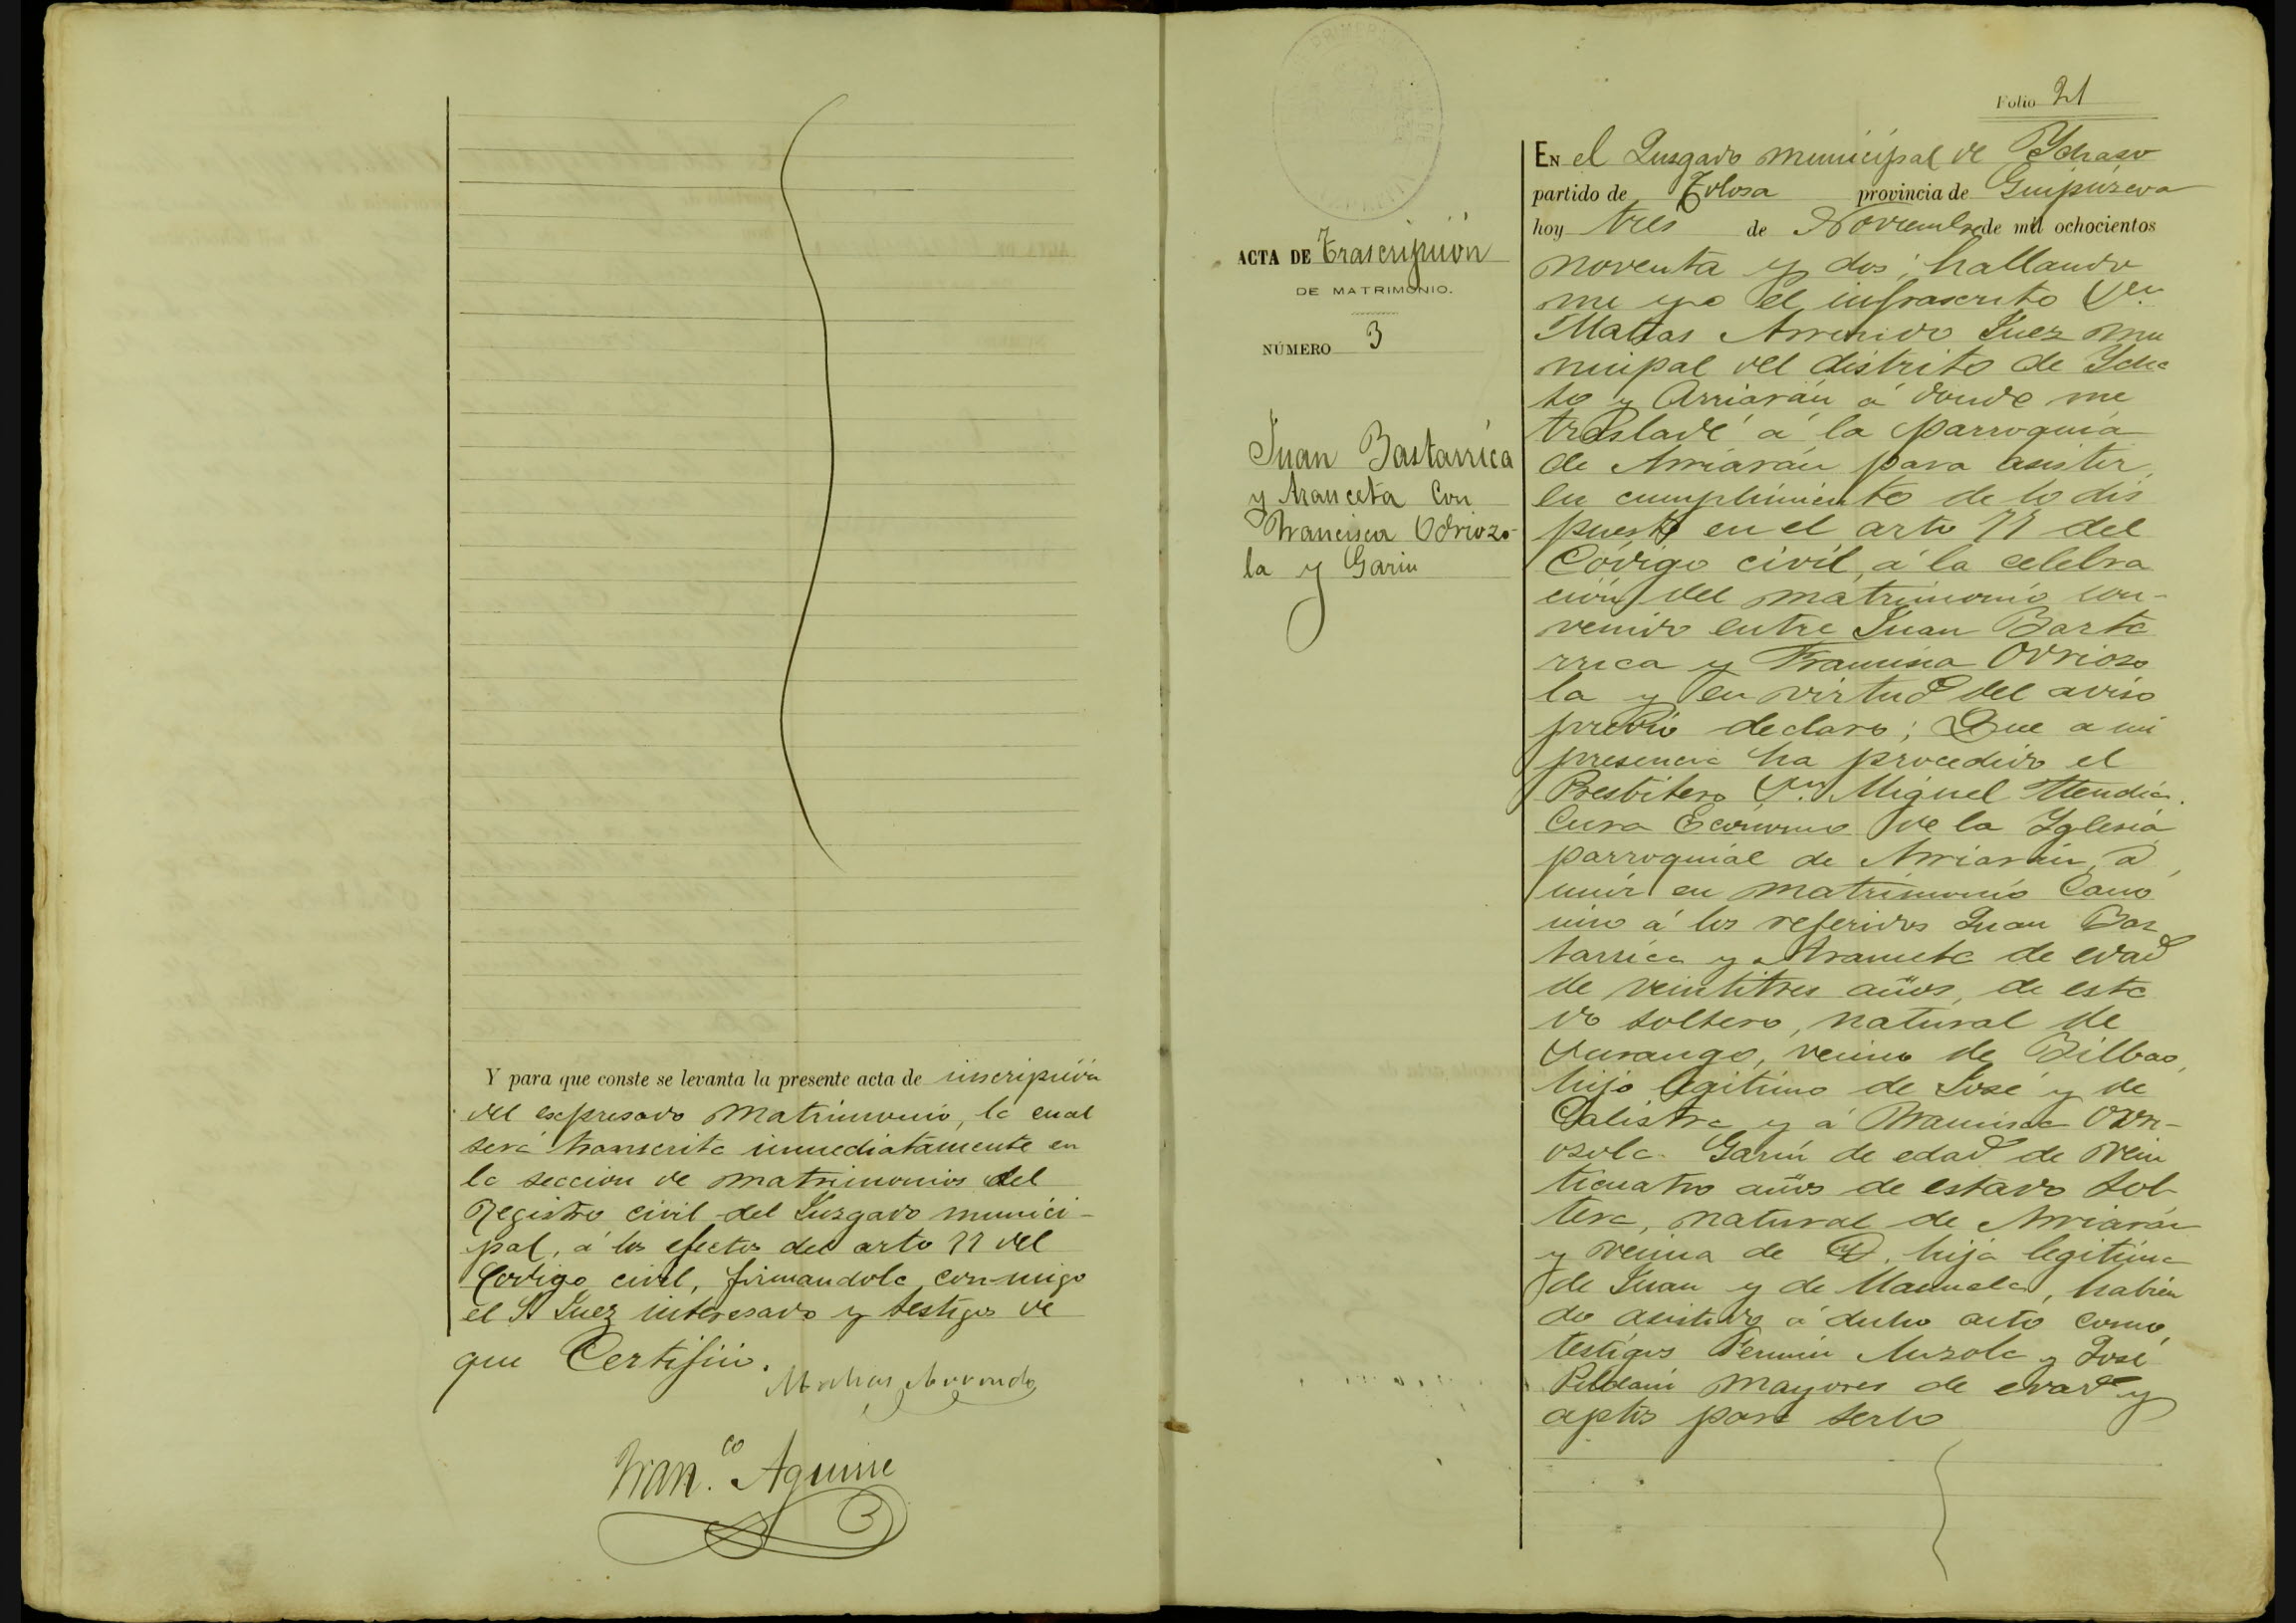 Y para que conste se levanta la presente acta de inscripción
del espresado matrimonio, la cual
será transcrita inmediatamente en
la seccion de matrimonios del
Registro civil del Juzgado munici-
pal, á los efectos del arto 77 del
Codigo civil, firmandola con-migo
el Sr Juez interesado y testigos de
que Certifico.
Matias Arrondo
Fran.co Aguirre
Folio 21
ACTA DE Trascripción
DE MATRIMONIO.
NÚMERO 3
Juan Bastarrica
y Aranceta con
Francisca Odriozo-
la y Garin
EN el Juzgado municipal de Ychaso
partido de Tolosa provincia de Guipúzcoa
hoy tres de Noviembre de mil ochocientos
noventa y dos; hallando
me yo el infrascrito Dn
Matias Juez mu
nicipal del distrito de Ycha
so y Arriarán á donde me
trasladé á la parroquia
de Arriarán para asistir,
en cumplimiento de lo dis
puesto en el arto 77 del
Código civil, á la celebra
ción del matrimonio con-
venido entre Juan Basta
rrica y Francisca Odriozo
la y en virtud del aviso
previo declaro; Que a mi
presencia ha procedido el
Presbitero Dn Miguel Mendia
Cura Economo de la Yglesia
parroquial de Arriarán, á
unir en matrimonio Cano
nico á los referidos Juan Bas
tarrica y Aranceta de edad
de veintitres años, de esta
do soltero, natural de
Durango, vecino de Bilbao,
hijo legitimo de José y de
Calistra y á Francisca Odri-
ozola Garin de edad de vein
ticuatro años de estado sol
tera, natural de Arriarán
y vecina de id, hija legitima
de Juan y de Manuela, habien
do asistido á dicho acto como
testigos Fermin y José
mayores de edad y
aptos para serlo